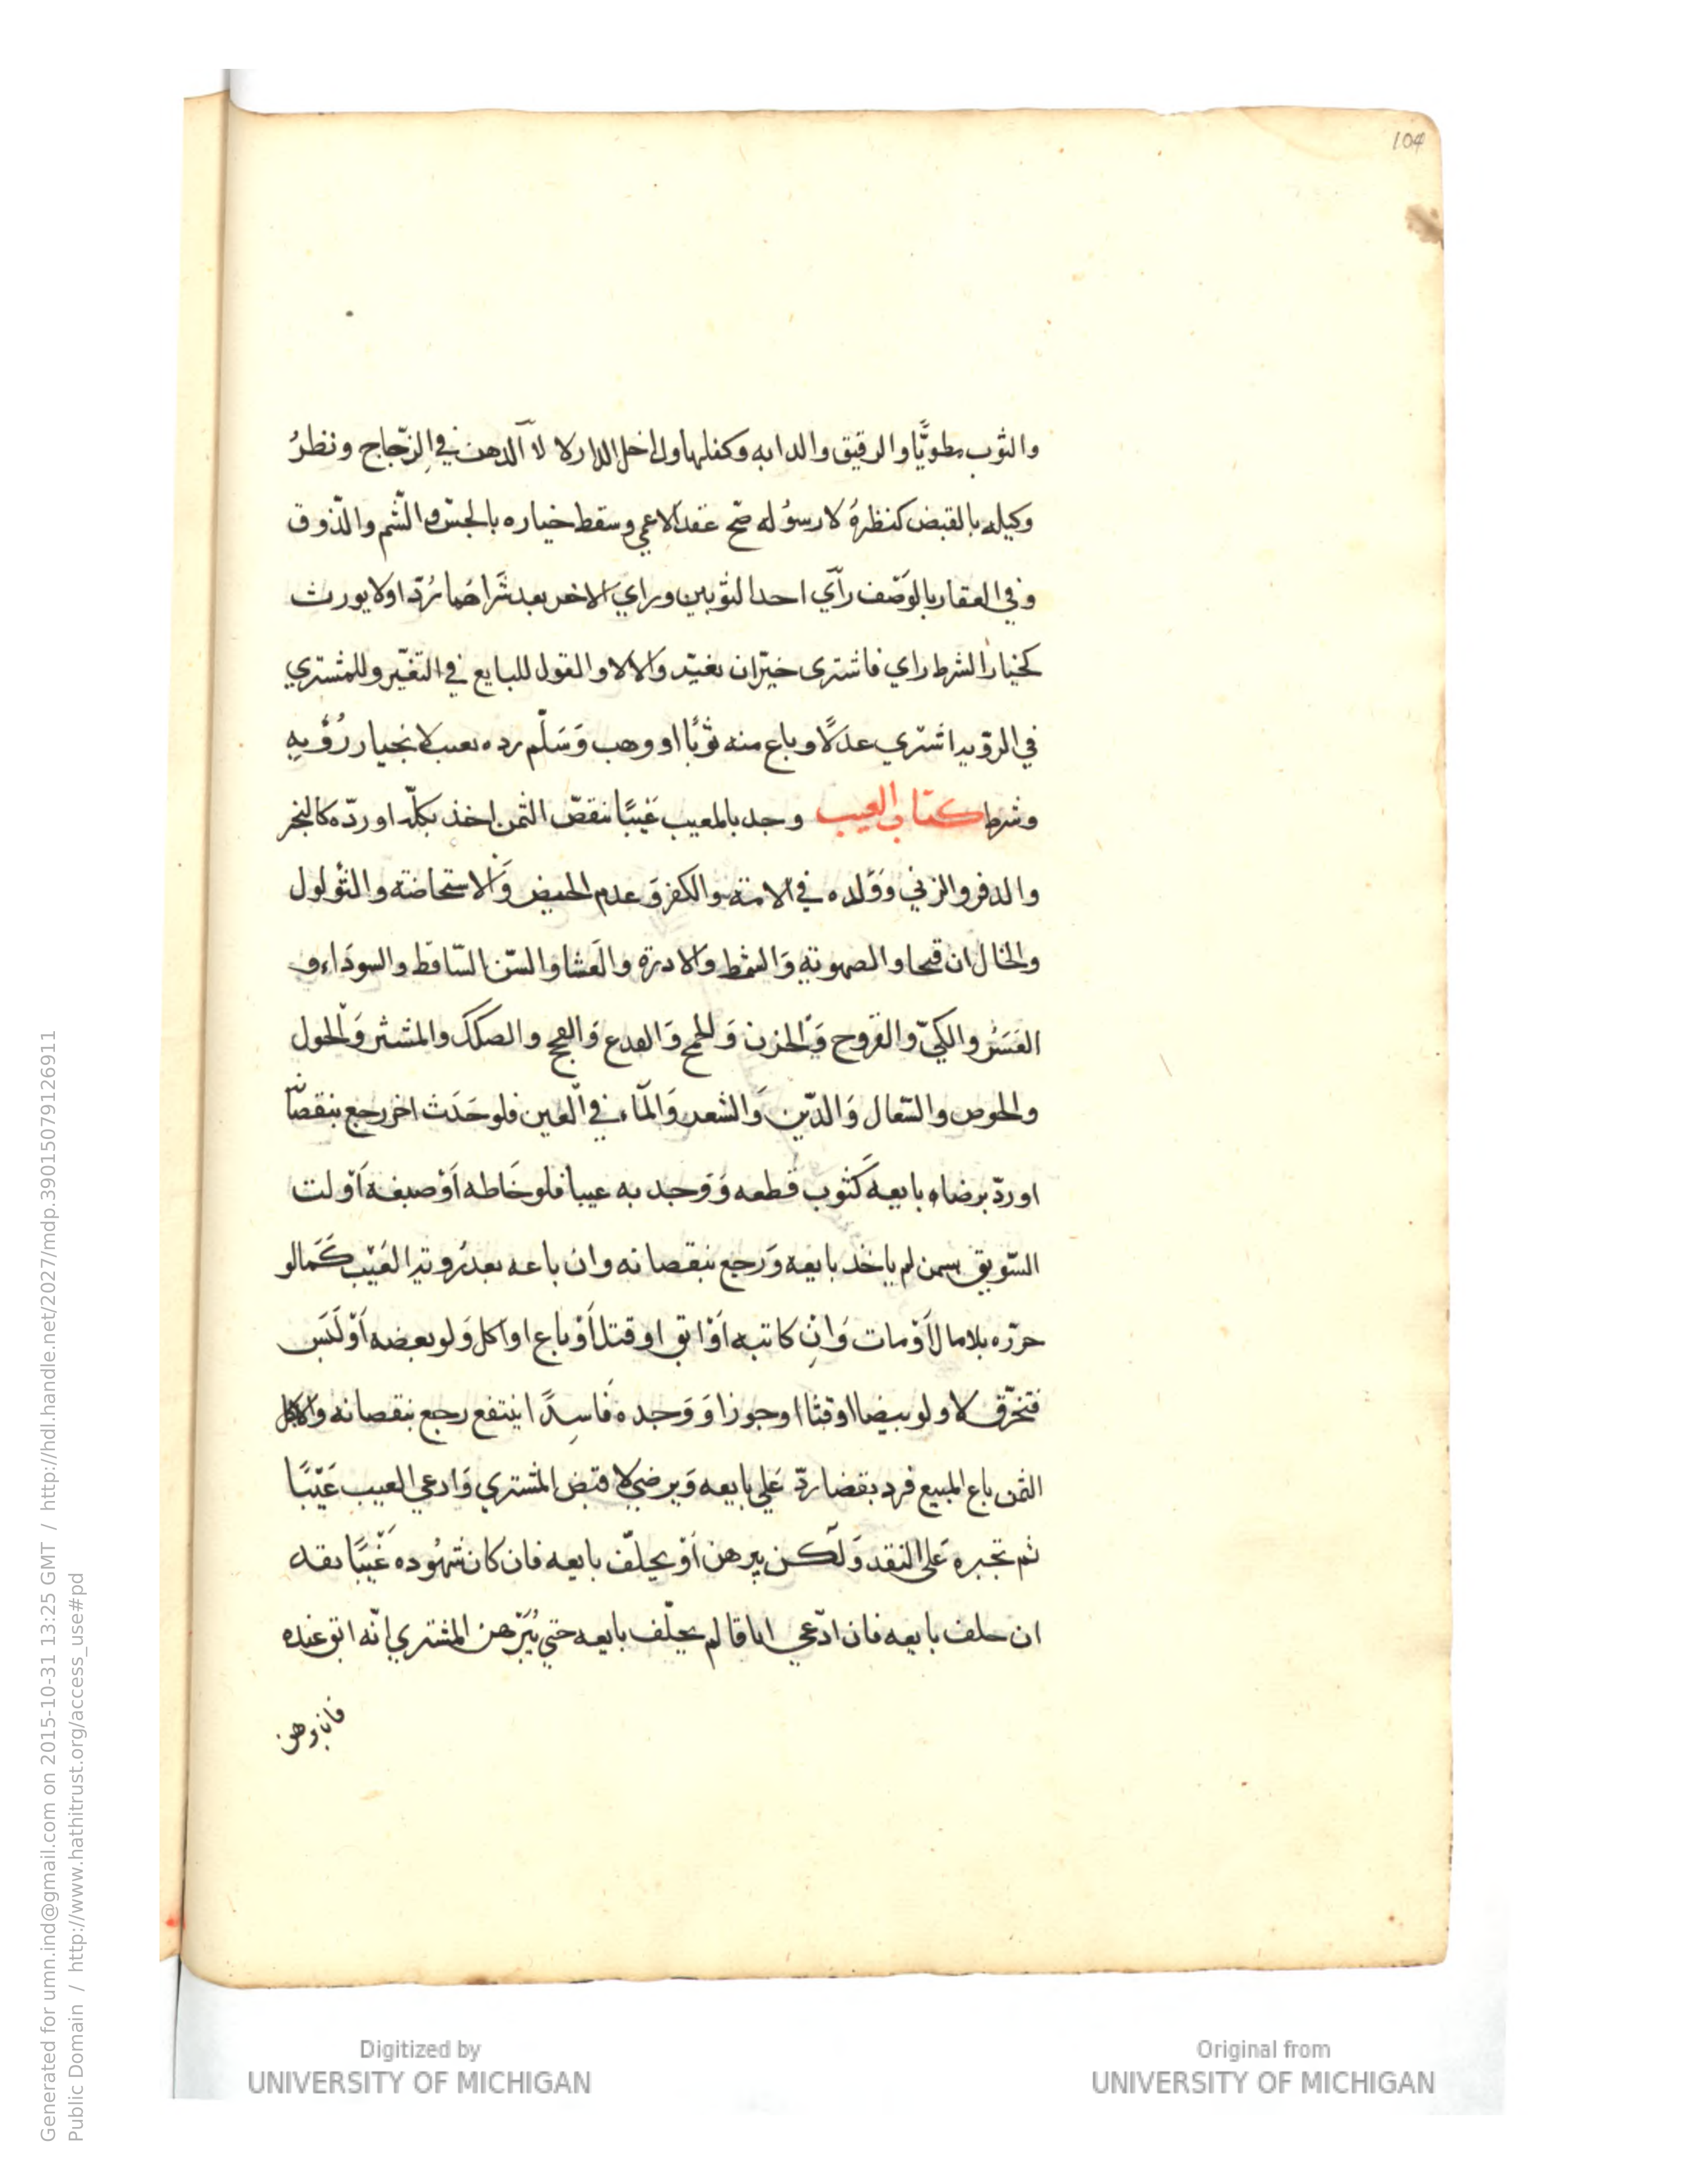 104
والثوب مطويًّا والرقيق والدابه وكفلها وداخل الدار لا لا الدهن في الزجاج ونظرُ
وكيله بالقبض كنظرهُ لا رسوُله صحّ عقد الاعمي وسقط خياره بالجسّ والشّم والذّوق
وفي العقار بالوَصْف رأي احد الثوبين وراي الاخر بعد شَراهُما رُدّ او لا يورث
كخيار الشرط راي فاشترى خيّر ان تغيّر والا لا والقول للبايع في التغيّر وللمشتري
في الرؤيه اشتري عدلًا وباع منه ثوبًا او وهب وَسَلّم رده بعيب لا بخيار رُؤيه
وشرط كتاب العيب وجد بالمعيب عَيبًا نقصّ الثمن اخذ بكلّه او ردّه كالبخر
والدفر والزني وَوَلده في الامة والكفر وَعدم الحيض وَالاستحاضة والثؤلول
والخال ان قبحا والصهوبةِ وَالشمط والادرة والعشا والسّن السّاقط والسودَاء و
العَسَرُ والكيّ والقروح وَالحزن وَ وَالفدع وَالفحج والصكك والمشش وَالحول
والحوص والسّعال وَالدّين وَالشعر وَالمآء في العين فلو حَدَث اخر رجع بنقصانه
او ردّ برضاه بايعه كَثوب قطعه وَوَجد به عيبا فلو خَاطه اَوْ صبغه اَوْ لت
السّويق بسمن لم ياخذ بايعه وَرجع بنقصانه وان باعه بعد رُوية العَيْب كَمَا لو
حرّره بلا مال اَوْ مات وَان كاتبه اَوْ ابق او قتل اَوْ باع او اكل وَلو بعضه اَوْ لَبَس
فتخرّق لا ولو بيضا او قثا او جوزا وَوَجده فَاسِدًا ينتفع رجع بنقصانه وَالا بكل
الثمن باع المبيع فرد بقضا ردّ عَلي بايعه وَبرضي لا قبض المشتري وَادعي العيب عَيْبًا
لم تجبره عَلي النقد وَلكن يبرهن اَوْ يحلّف بايعه فان كان شهُوده غُيّبًا نقد
ان حلف بايعه فان ادّعي اباقا لم يحلّف بايعه حتي يُبَرّهن المشتري انّه ابق عنده
فان برهن
Generated for umn.ind@gmail.com on 2015-10-31 13:25 GMT / http://hdl.handle.net/2027/mdp.39015079126911
Public Domain / http://www.hathitrust.org/access_use#pd
Digitized by
UNIVERSITY OF MICHIGAN
Original from
UNIVERSITY OF MICHIGAN